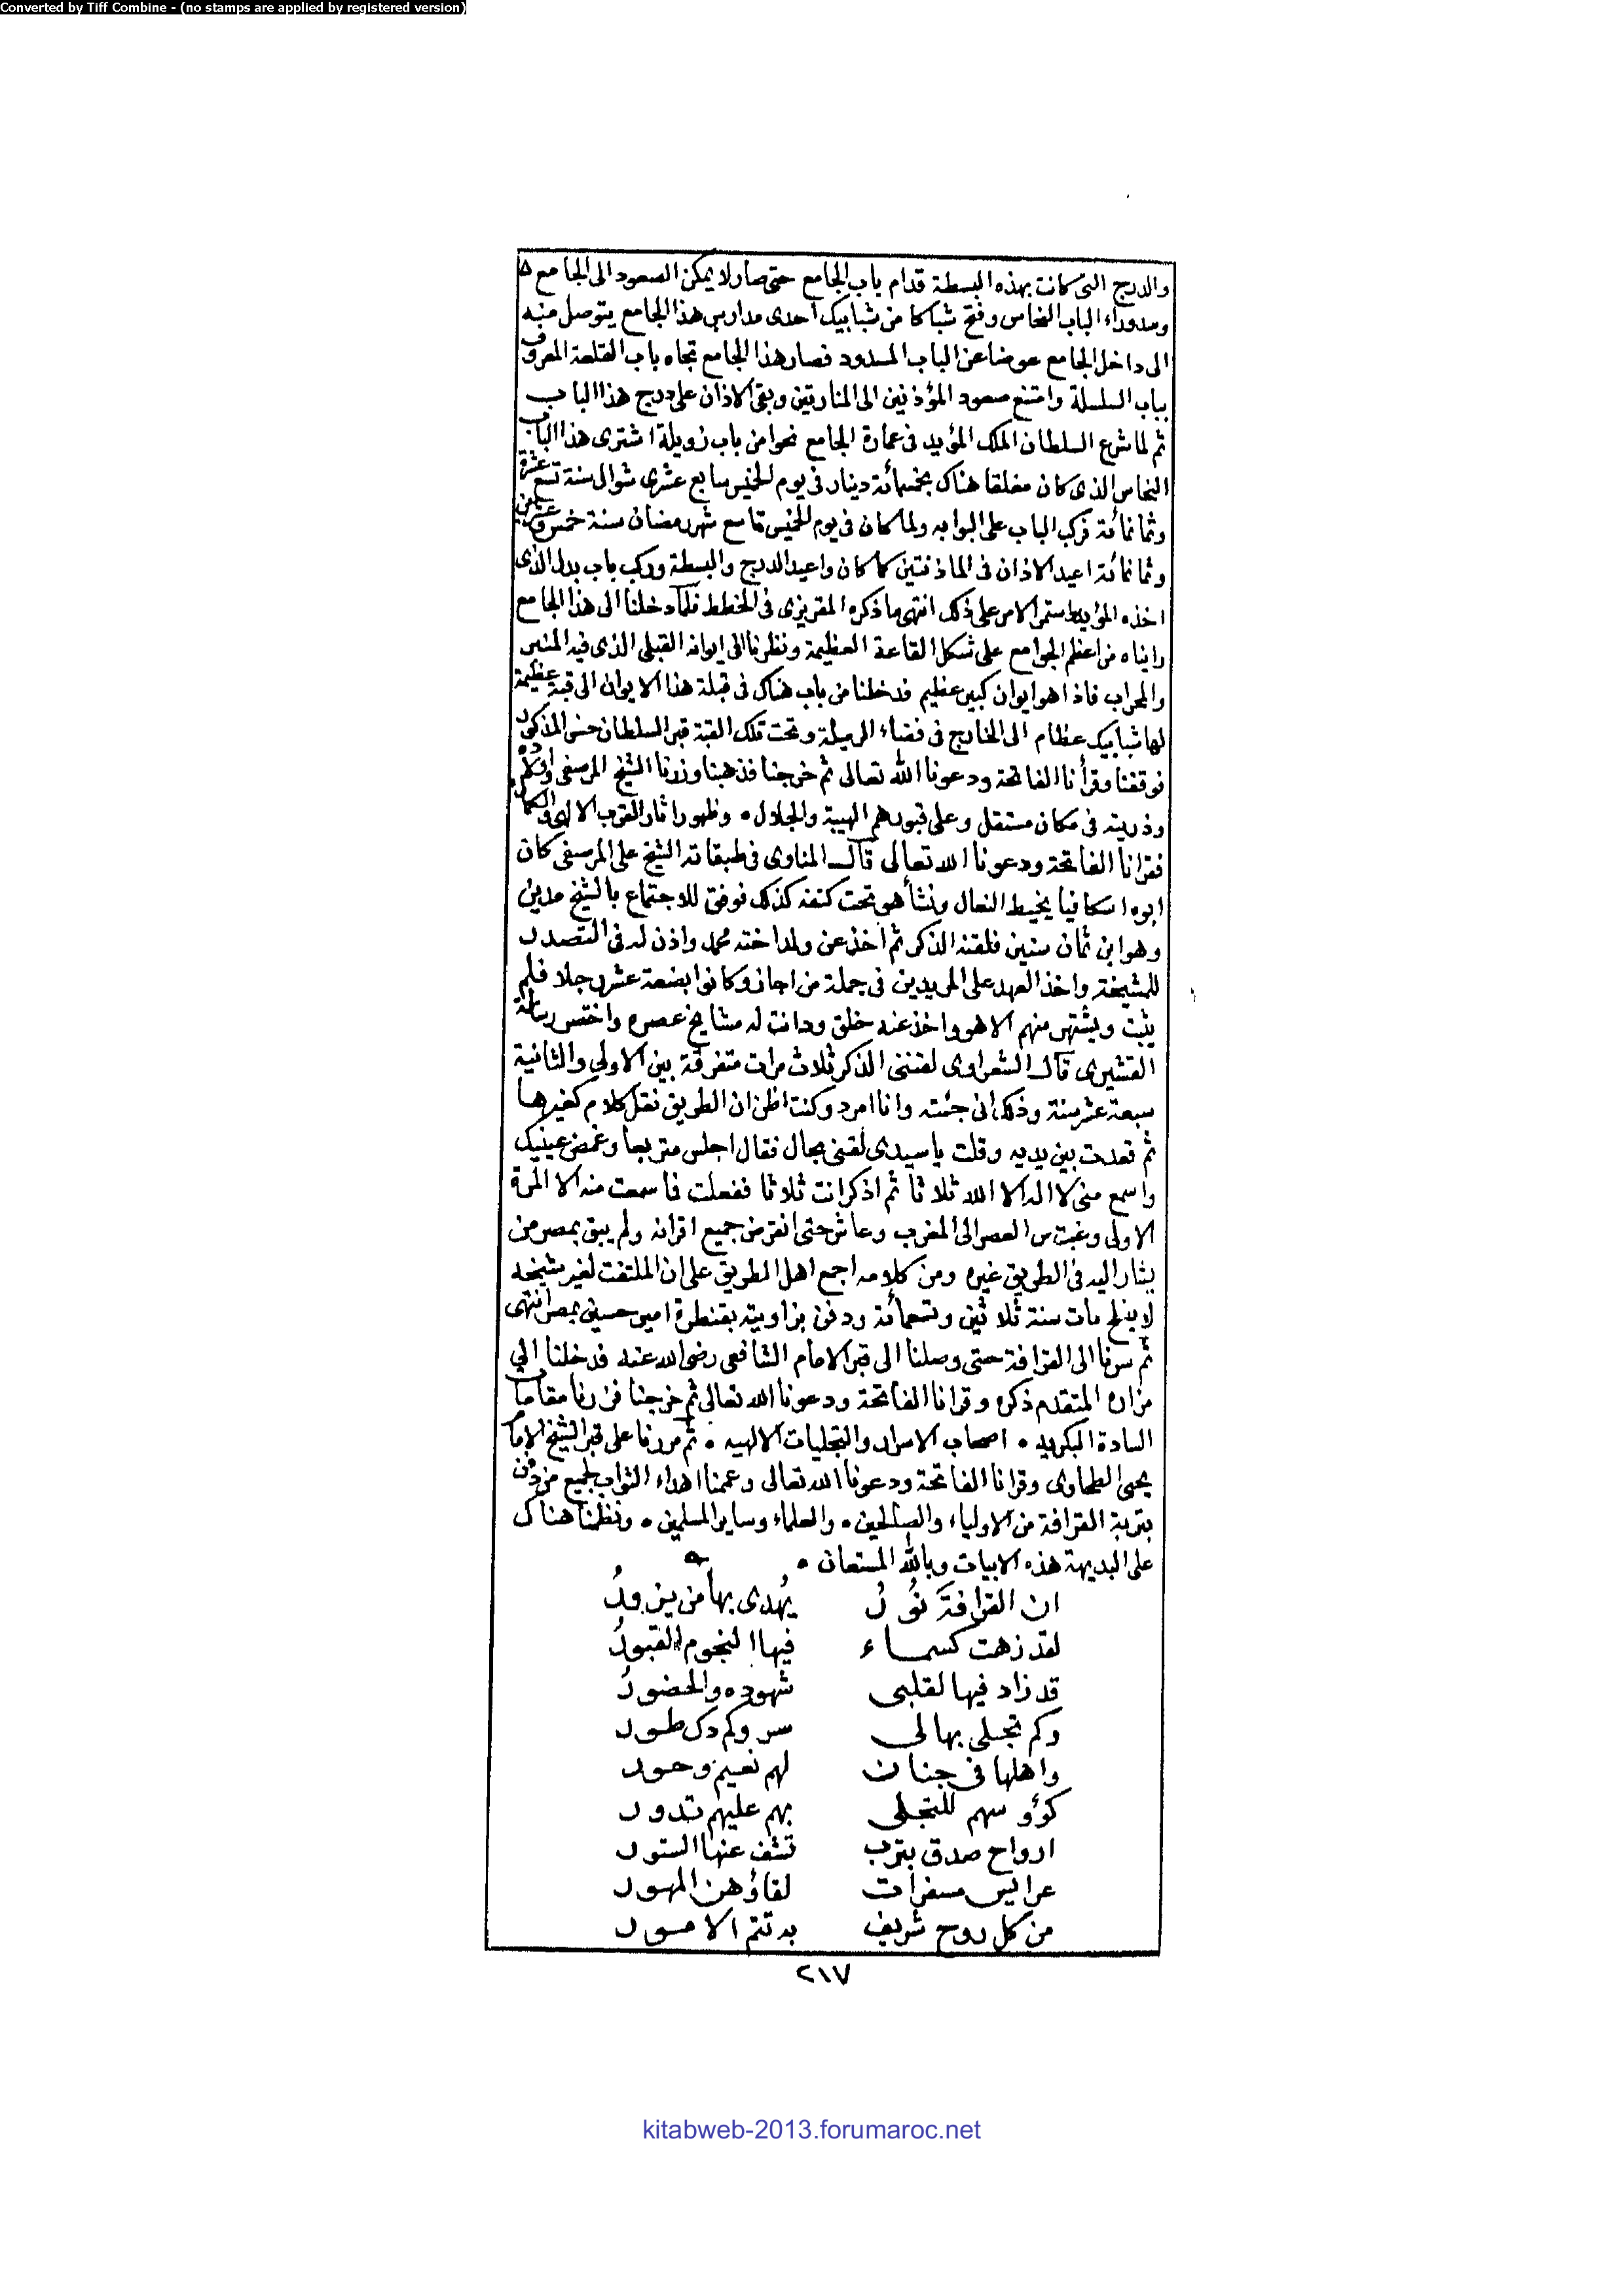 Converted by Tiff Combine - (no stamps are applied by registered version)
والدرج التى كانت بهذه البسطة قدام باب الجامع حتى صار لا يمكن الصعود الى الجامع
وسد وراء الباب النحاس وفتح شباكا من شبابيك احدى مدارس هذا الجامع يتوصل منه
الى داخل الجامع عوضا عن الباب المسدود فصار هذا الجامع تجاه باب القلعة المعروف
بباب السلسلة وامتنع صعود المؤذنين الى المنارتين وبقى الاذان على درج هذا الباب
ثم لما شرع السلطان الملك المؤيد فى عمارة الجامع نحوا من باب زويلة اشترى هذا الباب
النحاس الذى كان معلقا هناك بخمسمائة دينار فى يوم الخميس سابع عشرى شوال سنة تسع عشرة
وثمانمائة فركب الباب على البوابه ولما كان فى يوم الخميس تاسع شهر رمضان سنة خمس وعشرين
وثمانمائة اعيد الاذان فى الماذنتين كما كان واعيد الدرج والبسطة وركب باب بدل الذى
اخذه المؤيد واستمر الامر على ذلك انتهى ما ذكره المقريزى فى الخطط فلما دخلنا الى هذا الجامع
رايناه من اعظم الجوامع على شكل القاعة العظيمة ونظرنا الى ايوانه القبلى الذى فيه المنبر
والمحراب فاذا هو ايوان كبير عظيم فدخلنا من باب هناك فى قبلة هذا الايوان الى قبة عظيمة
لها شبابيك عظام الى الخارج فى فضاء الرميلة وتحت تلك القبة قبر السلطان حسن المذكور
فوقفنا وقرأنا الفاتحة ودعونا الله تعالى ثم خرجنا فذهبنا وزرنا الشيخ المرصفى واولاده
وذريته فى مكان مستقل وعلى قبورهم الهيبة والجلال • وظهور اثار القرب الالهى والكمال
فقرانا الفاتحة ودعونا الله تعالى قال المناوى فى طبقاته الشيخ على المرصفى كان
ابوه اسكافيا يخيط النعال ونشأ هو تحت كنفه كذلك فوفق للاجتماع بالشيخ مدين
وهو ابن ثمان سنين فلقنه الذكر ثم اخذ عن ولد اخته محمد واذن له فى التصدر
للمشيخة واخذ العهد على المريدين فى جملة من اجاز وكانوا بضعة عشر رجلا فلم
يثبت ويشتهر منهم الا هو واخذ عنه خلق ودانت له مشايخ عصره واختصر رسالة
القشيرى قال الشعراوى لقننى الذكر ثلاث مرات متفرقة بين الاولى والثانية
سبعة عشر سنة وذلك انى جئته وانا امرد وكنت اظن ان الطريق نقل كلام كغيرها
ثم قعدت بين يديه وقلت يا سيدى لقنى بحال فقال اجلس متربعا وغمض عينيك
واسمع منى لا اله الا الله ثلاثا ثم اذكر انت ثلاثا ففعلت فما سمعت منه الا المرة
الاولى وغبت من العصر الى المغرب وعاش حتى انقرض جميع اقرانه ولم يبق بمصر من
يشار اليه فى الطريق غيره ومن كلامه اجمع اهل الطريق على ان الملتفت لغير شيخه
لا يفلح مات سنة ثلاثين وتسعمائة ودفن بزاويته بقنطرة امير حسين بمصر انتهى
ثم سرنا الى القرافة حتى وصلنا الى قبر الامام الشافعى رضى الله عنه فدخلنا الى
مزاره المتقدم ذكره وقرانا الفاتحة ودعونا الله تعالى ثم خرجنا فزرنا مقامات
السادة البكريه • اصحاب الاسرار والتجليات الالهيه • ثم مررنا على قبر الشيخ الامام
يحيى الطحاوى وقرانا الفاتحة ودعونا الله تعالى وعممنا اهداء الثواب لجميع من دفن
بتربة القرافة من الاولياء والصالحين • والعلماء وساير المسلمين • ونظمنا هناك
على البديهة هذه الابيات وبالله المستعان •
ان القرافةَ نُوُرُ يُهدى بها من يزورُ
لقد زهت كسماء فيها النجوم القبورُ
قد زاد فيها لقلبى شهوده والحضورُ
وكم تجلى بها لى سر وكم دك طور
واهلها فى جنان لهم نعيم وحور
كؤوسهم للتجلى بهم عليهم تدور
ارواح صدق بترب تشف عنها الستور
عرايس مسفرات لقاؤهن المهور
من كل روح شريف به تتم الامور
٢١٧
kitabweb-2013.forumaroc.net